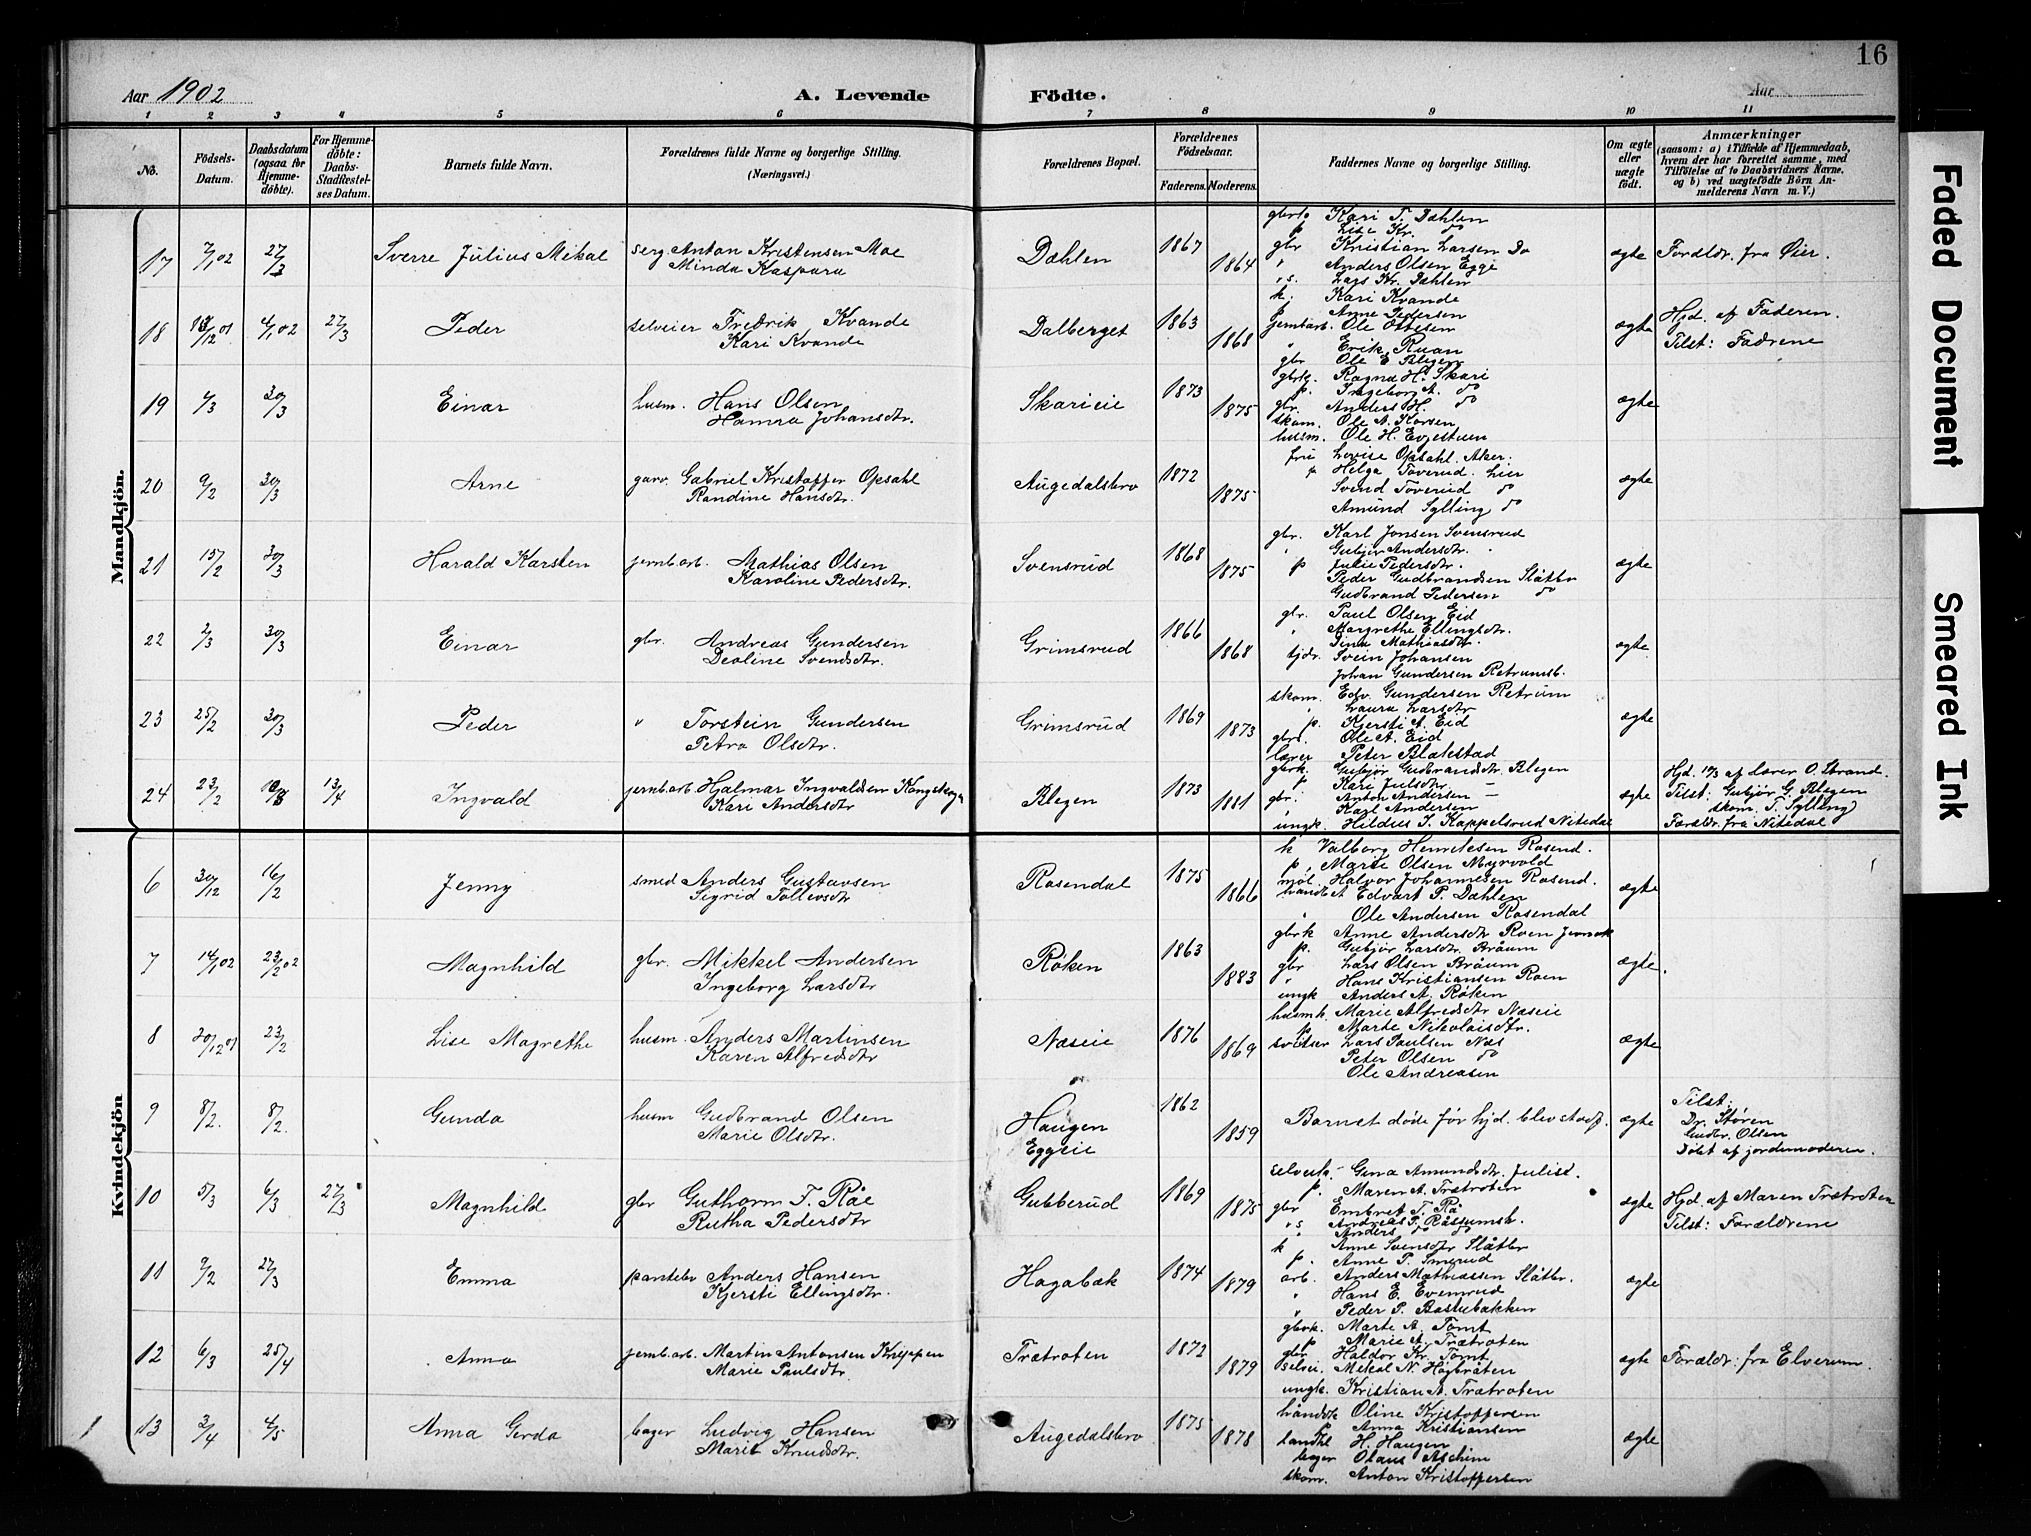 16
Aar 1902 A. Levende Födte. Aar
1 2 3 4 5 6 7 8 9 10 11
No.
Födsels-Datum.
Daabsdatum (ogsaa for Hjemme-döbte).
For Hjemme-döbte: Daabs-Stadfæstel-ses Datum.
Barnets fulde Navn.
Forældrenes fulde Navne og borgerlige Stilling.
(Næringsvei.)
Forældrenes Bopæl.
Forældrenes Födselsaar.
Faderens. Moderens.
Faddernes Navne og borgerlige Stilling.
Om ægte eller uægte födt.
Anmærkninger
(saasom: a) i Tilfælde af Hjemmedaab, hvem der har forrettet samme, med Tilföielse af to Daabsvidners Navne, og b) ved uægtefödte Börn An-melderens Navn m. V.)
Mandkjön.
17 7/1 02 27/3 Sverre Julius Mikal serg. Anton Kristensen Moe
Minda Kaspara
Dæhlen 1867 1864
gbrk. Kari T. Dæhlen
p Lise Kr. do
gbr Kristian Larsen Do
" Anders Olsen Egge
" s. Lars Kr. Dæhlen
ægte Forældr. fra Øier.
18 /12 01 4/1 02 27/3 Peder selveier Fredrik Kvande
Kari Kvande
Dalberget 1863 1868
k. Kari Kvande
p Anne Pedersen
jernb.arb. Ole Ottesen
" Erik Ruan
gbr Ole E Blegen
ægte Hjd. af Faderen.
Tilst: Fadrene
19 4/3 30/3 Einar husm. Hans Olsen
Hanna Johansdtr.
Skarieie 1873 1875
gbrk. Ragna H. Skari
p. Ingeborg A. do
gbr. Anders H. do
skom. Ole A. Korsen
husm. Ole H. Evjestuen
ægte
20 9/2 30/3 Arne garv. Gabriel Kristoffer Opsahl
Randine Hansdtr.
Augedalsbro 1872 1875
fru Lovise Opsahl. Aker.
p Helga Toverud. Lier
Svend Toverud do
Amund Sylling do
ægte
21 15/2 30/3 Harald Karsten jernb.arb. Mathias Olsen
Karoline Pedersdtr.
Svensrud 1868 1875
gbr. Karl Jonsen Svensrud
" Gubjør Andersdtr.
p Julie Pedersdtr.
Peder Gudbrandsen Slåtbr
Gudbrand Pedersen do
ægte
22 2/3 30/3 Einar gbr. Andreas Gundersen
Deoline Svendsdtr.
Grimsrud 1866 1868
gbr. Paul Olsen Eid
" Margrethe Ellingsdtr.
Tina Mathiasdtr.
tjdr. Svein Johansen
Johan Gundersen Retrumsb.
ægte
23 25/2 30/3 Peder " Torstein Gundersen
Petra Olsdtr.
Grimsrud 1869 1873
skom. Edv. Gundersen Retrum
" Laura Larsdtr
p. Kjersti A. Eid
gbrs. Ole A. Eid
lærer Peter Blakstad
ægte
24 23/2 13/4 Ingvald jernb.arb Hjalmar Ingvaldsen Kongskoge
Kari Andersdtr
Blegen 1873 1881
gbrk. Gubjør Gudbrandsdtr. Blegen
p Kari Julsdtr —
gbr. Anton Andersen —
Karl Andersen
ungk. Hildus J. Kappelsrud Nitedal
ægte Hjd. af Lærer O. Strand.
Tilst: Gubjør G. Blegen
skom. T. Sylling
Forældr. fra Nitedal
Kvindekjön
6 30/12 16/2 Jenny smed Anders Gustavsen
Sigrid Tollevsdtr
Rosendal 1875 1866
k Valborg Henriksen Rosend.
p. Marie Olsen Myrvold
møl. Halvor Johannesen Rosend.
Edvart P. Dæhlen
" Ole Andersen Rosendal
ægte
7 14/1 02 23/2 02 Magnhild gbr. Mikkel Andersen
Ingeborg Larsdtr
Røken 1863 1883
gbrk Anne Andersdtr Roen
p. Gubjør Larsdtr Bråum
gbr Lars Olsen Bråum
" Hans Kristiansen Roen
ungk Anders A. Røken
ægte.
8 20/12 01 23/2 Lise Magrethe husm. Anders Martinsen
Karen Alfredsdtr
Næseie 1876 1869
husmk. Marie Alfredsdtr Næseie
p Marte Nikolaisdtr.
sveitser Lars Paulsen Næs
Peter Olsen do
Ole Andreasen
ægte
9 8/2. 8/2. Gunda husm Gudbrand Olsen
Marie Olsdtr.
Haugen
Eggeie 1862 1859
Barnet døde før hjd. blev stadf.
ægte Tilst:
Dr. Støren
Gudbr. Olsen
Døbt af jordemoderen.
10 5/3 6/3 27/3 Magnhild gbr Guthorm T. Råe
Rutha Pedersdtr
Gubberud 1869 1875
selveierk. Gina Amundsdtr. Julist.
p. Maren A. Trætroten
gbr Embret T. Rå
" s Andreas P. Råstumsb.
" Anders do do
ægte Hjd. af Maren Trætroten
Tilst: Forældrene
11 9/2 27/3 Emma pantebr Anders Hansen
Kjersti Ellingsdtr.
Hagabæk 1874 1879
k Anne Svensdtr Slåtbr
p. Anne P. Smerud
arb. Anders Mathiassen Slåtbr.
" Hans E. Evenrud
" Peder P. Bastubakken
ægte
12 6/3 25/4 Anna jernb.arb. Martin Antonsen Knippen
Marie Paulsdtr.
Trætroten 1872 1879
gbrk. Marte A. Tømt
p Marie A. Trætroten
gbr Haldor Kr. Tømt
selvei. Mikal N. Høgbråten
ungk. Kristian A. Trætroten
ægte Forældr: fra Elverum.
13 3/4 4/5 Anna Gerda bager Ludvig Hansen
Marit Knudsdtr.
Augedalsbro 1875 1878
håndtk Oline Kristoffersen
p Anna Kristiansen
landhl H. Haugen
bager Olaus Aschim
skom. Anton Kristoffersen
ægte
Faded Document
Smeared Ink